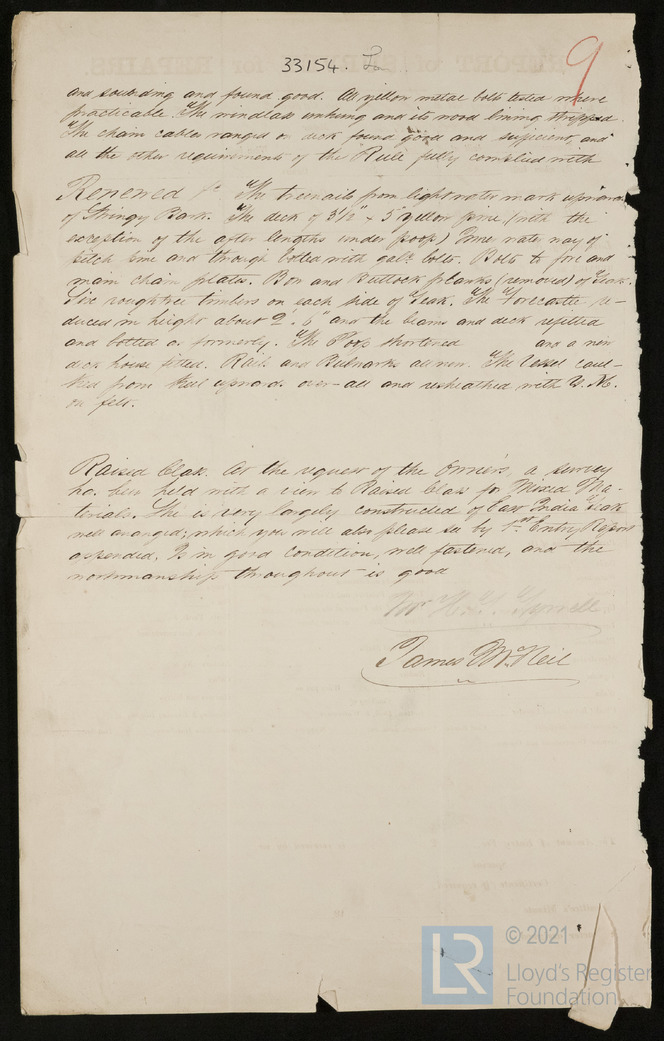 33154.
9
and sounding and found good. All yellow metal bolts tested where
practicable. The windlass unhung and its wood lining stripped.
The chain cables ranged on deck found good and sufficient, and
all the other requirements of the Rule fully complied with
Renewed The treenails from light water mark upwards
of Stringy Bark. The deck of 3½" x 5" yellow pine (with the
exception of the after lengths under poop) Inner water way of
pitch pine and through bolted with galv. bolts. Bolts to fore and
main chain plates. Bow and Buttock planks (removed) of Teak.
Five roughtree timbers on each side of Teak. The Forecastle re-
duced in height about 2'. 6" and the beams and deck refitted
and bolted as formerly. The Poop shortened and a new
deck house fitted. Rails and Bulwarks all new. The Vessel caul-
ked from keel upwards over-all and resheathed with Y. M.
on felt.
Raised Class. At the request of the Owners, a survey
has been held with a view to Raised Class for Mixed Ma-
terials. She is very largely constructed of East India Teak
well arranged; which you will also please see by 1st Entry Report
appended. Is in good condition, well fastened, and the
workmanship throughout is good
For H. Tyrrell
James McNeil
REPORT OF for REPAIRS.
LR
© 2021
Lloyd's Register
Foundation